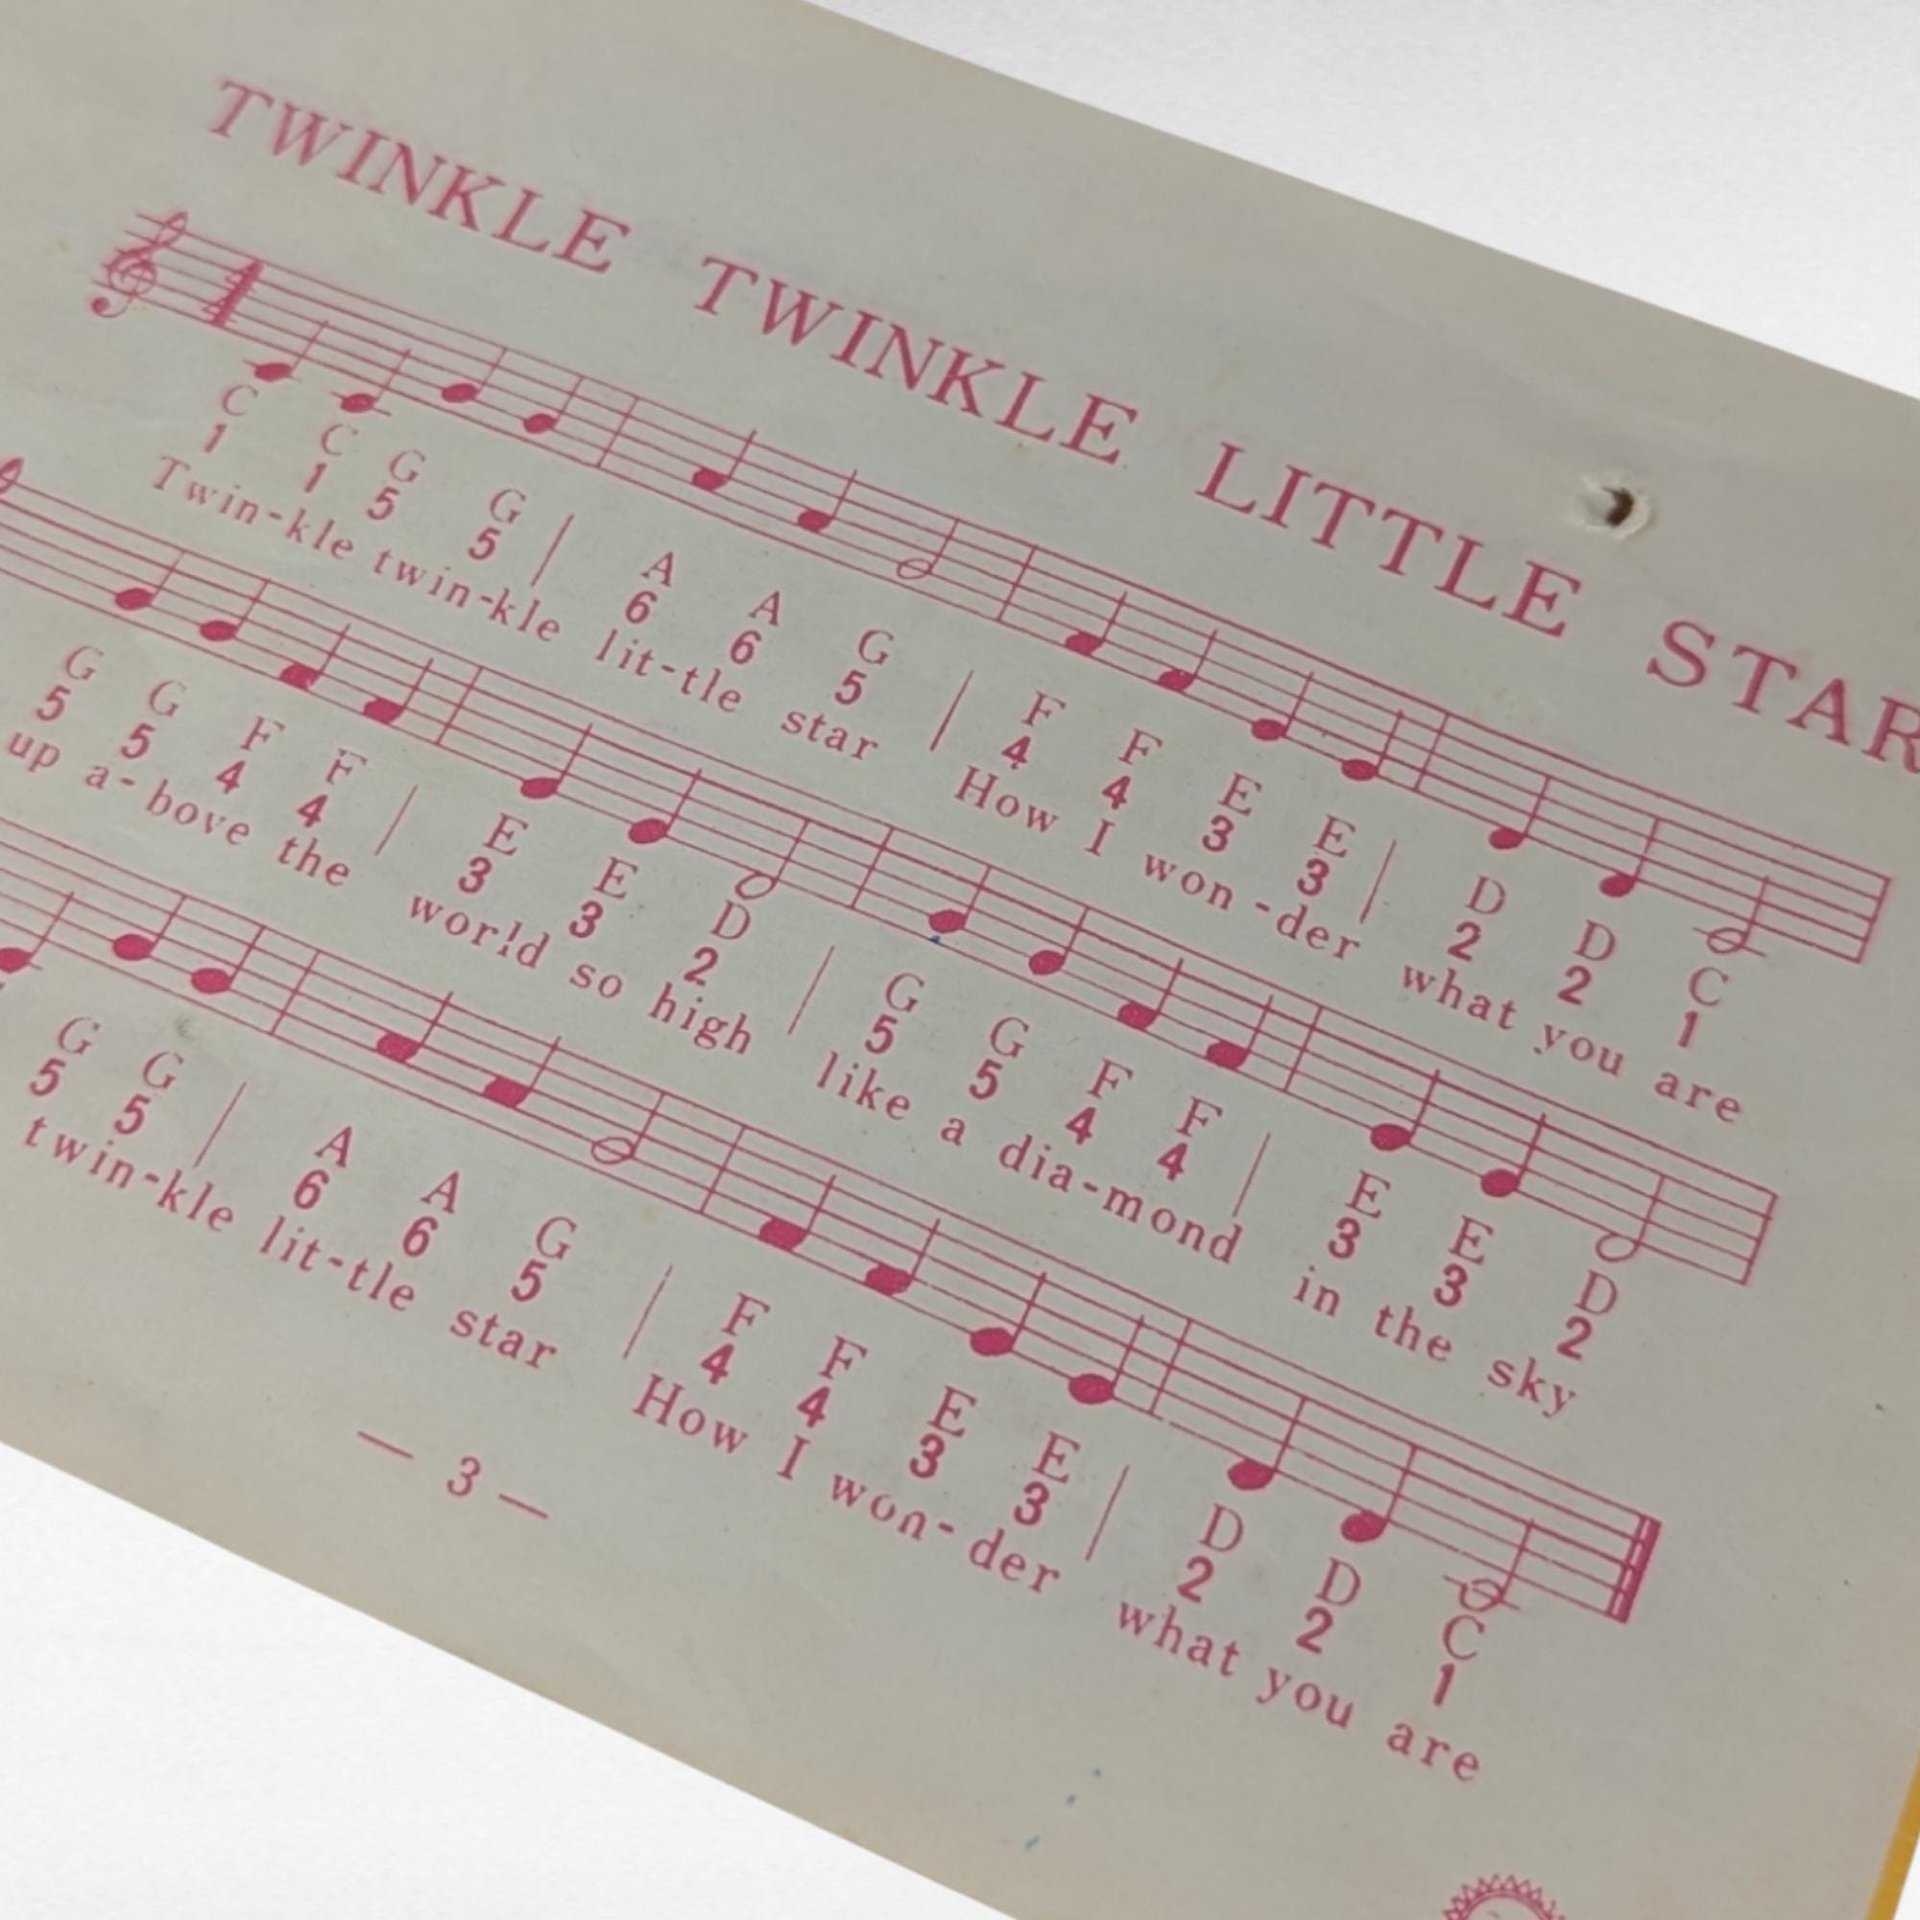 TWINKLE TWINKLE LITTLE STAR
C C G G | A A G | F F E E | D D C
1 1 5 5 6 6 5 4 4 3 3 2 2 1
Twin-kle twin-kle lit-tle star How I won-der what you are
G G F F | E E D | G G F F | E E D
5 5 4 4 3 3 2 5 5 4 4 3 3 2
up a-bove the world so high like a dia-mond in the sky
G G | A A G | F F E E | D D C
5 5 6 6 5 4 4 3 3 2 2 1
twin-kle lit-tle star How I won-der what you are
— 3 —